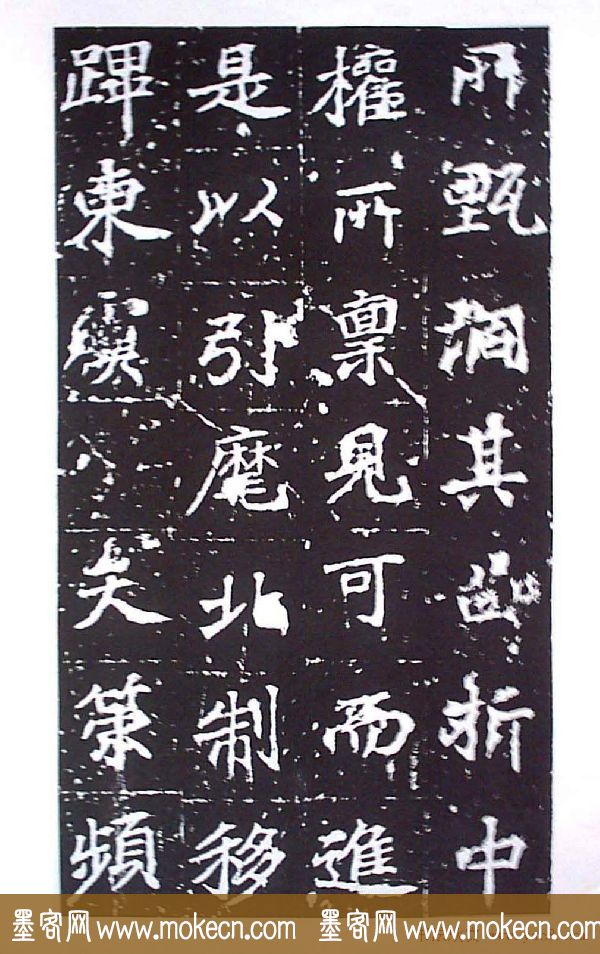 甄洞其幽折中
權所稟見可而進
是以引麾北制移
蹕東矣策頻
墨客网 www.mokecn.com 墨客网 www.mokecn.com